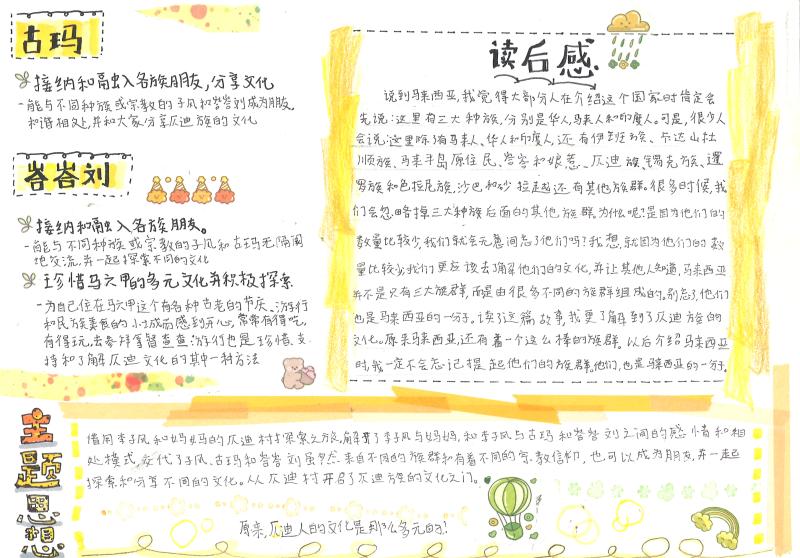 古玛
接纳和融入各族朋友，分享文化
-能与不同种族或宗教的子风和峇峇刘成为朋友
和谐相处，并和大家分享仄迪族的文化
峇峇刘
接纳和融入各族朋友。
-能与不同种族或宗教的子风和古玛无隔阂
地交流，并一起探索不同的文化
珍惜马六甲的多元文化并积极探索
-为自己住在马六甲这个有各种古老的节庆、游行
和民族美食的小城而感到开心，常常有得吃，
有得玩，去参拜笃督查查游行也是珍惜、支
持和了解仄迪文化的其中一种方法
读后感
说到马来西亚，我觉得大部分人在介绍这个国家时肯定会
先说：这里有三大种族，分别是华人、马来人和印度人。可是，很少人
会说：这里除了有马来人、华人和印度人，还有伊班族、卡达山杜
顺族、马来半岛原住民、峇峇和娘惹、仄迪族、锡克族、暹
罗族和色拉尼族，沙巴和砂拉越还有其他族群。很多时候，我
们会忽略掉三大种族后面的其他族群，为什么呢？是因为他们的
数量比较少，我们就会无意间忘了他们吗？我想，就因为他们的数
量比较少，我们更应该去了解他们的文化，并让其他人知道，马来西亚
并不是只有三大族群，而是由很多不同的族群组成的。别忘了，他们
也是马来西亚的一份子。读了这篇故事，我更了解到了仄迪族的
文化。原来马来西亚还有着一个这么棒的族群。以后介绍马来西亚
时，我一定不会忘记提起他们的族群。他们，也是马来西亚的一份子。
主题思想
借用李子风和妈妈的仄迪村探索之旅，解开了李子风与妈妈，和李子风与古玛和峇峇刘之间的感情和相
处模式，交代了子风、古玛和峇峇刘虽然来自不同的族群和有着不同的宗教信仰，也可以成为朋友，并一起
探索和分享不同的文化。从仄迪村开启了仄迪族的文化之门。
原来，仄迪人的文化是那么多元的！